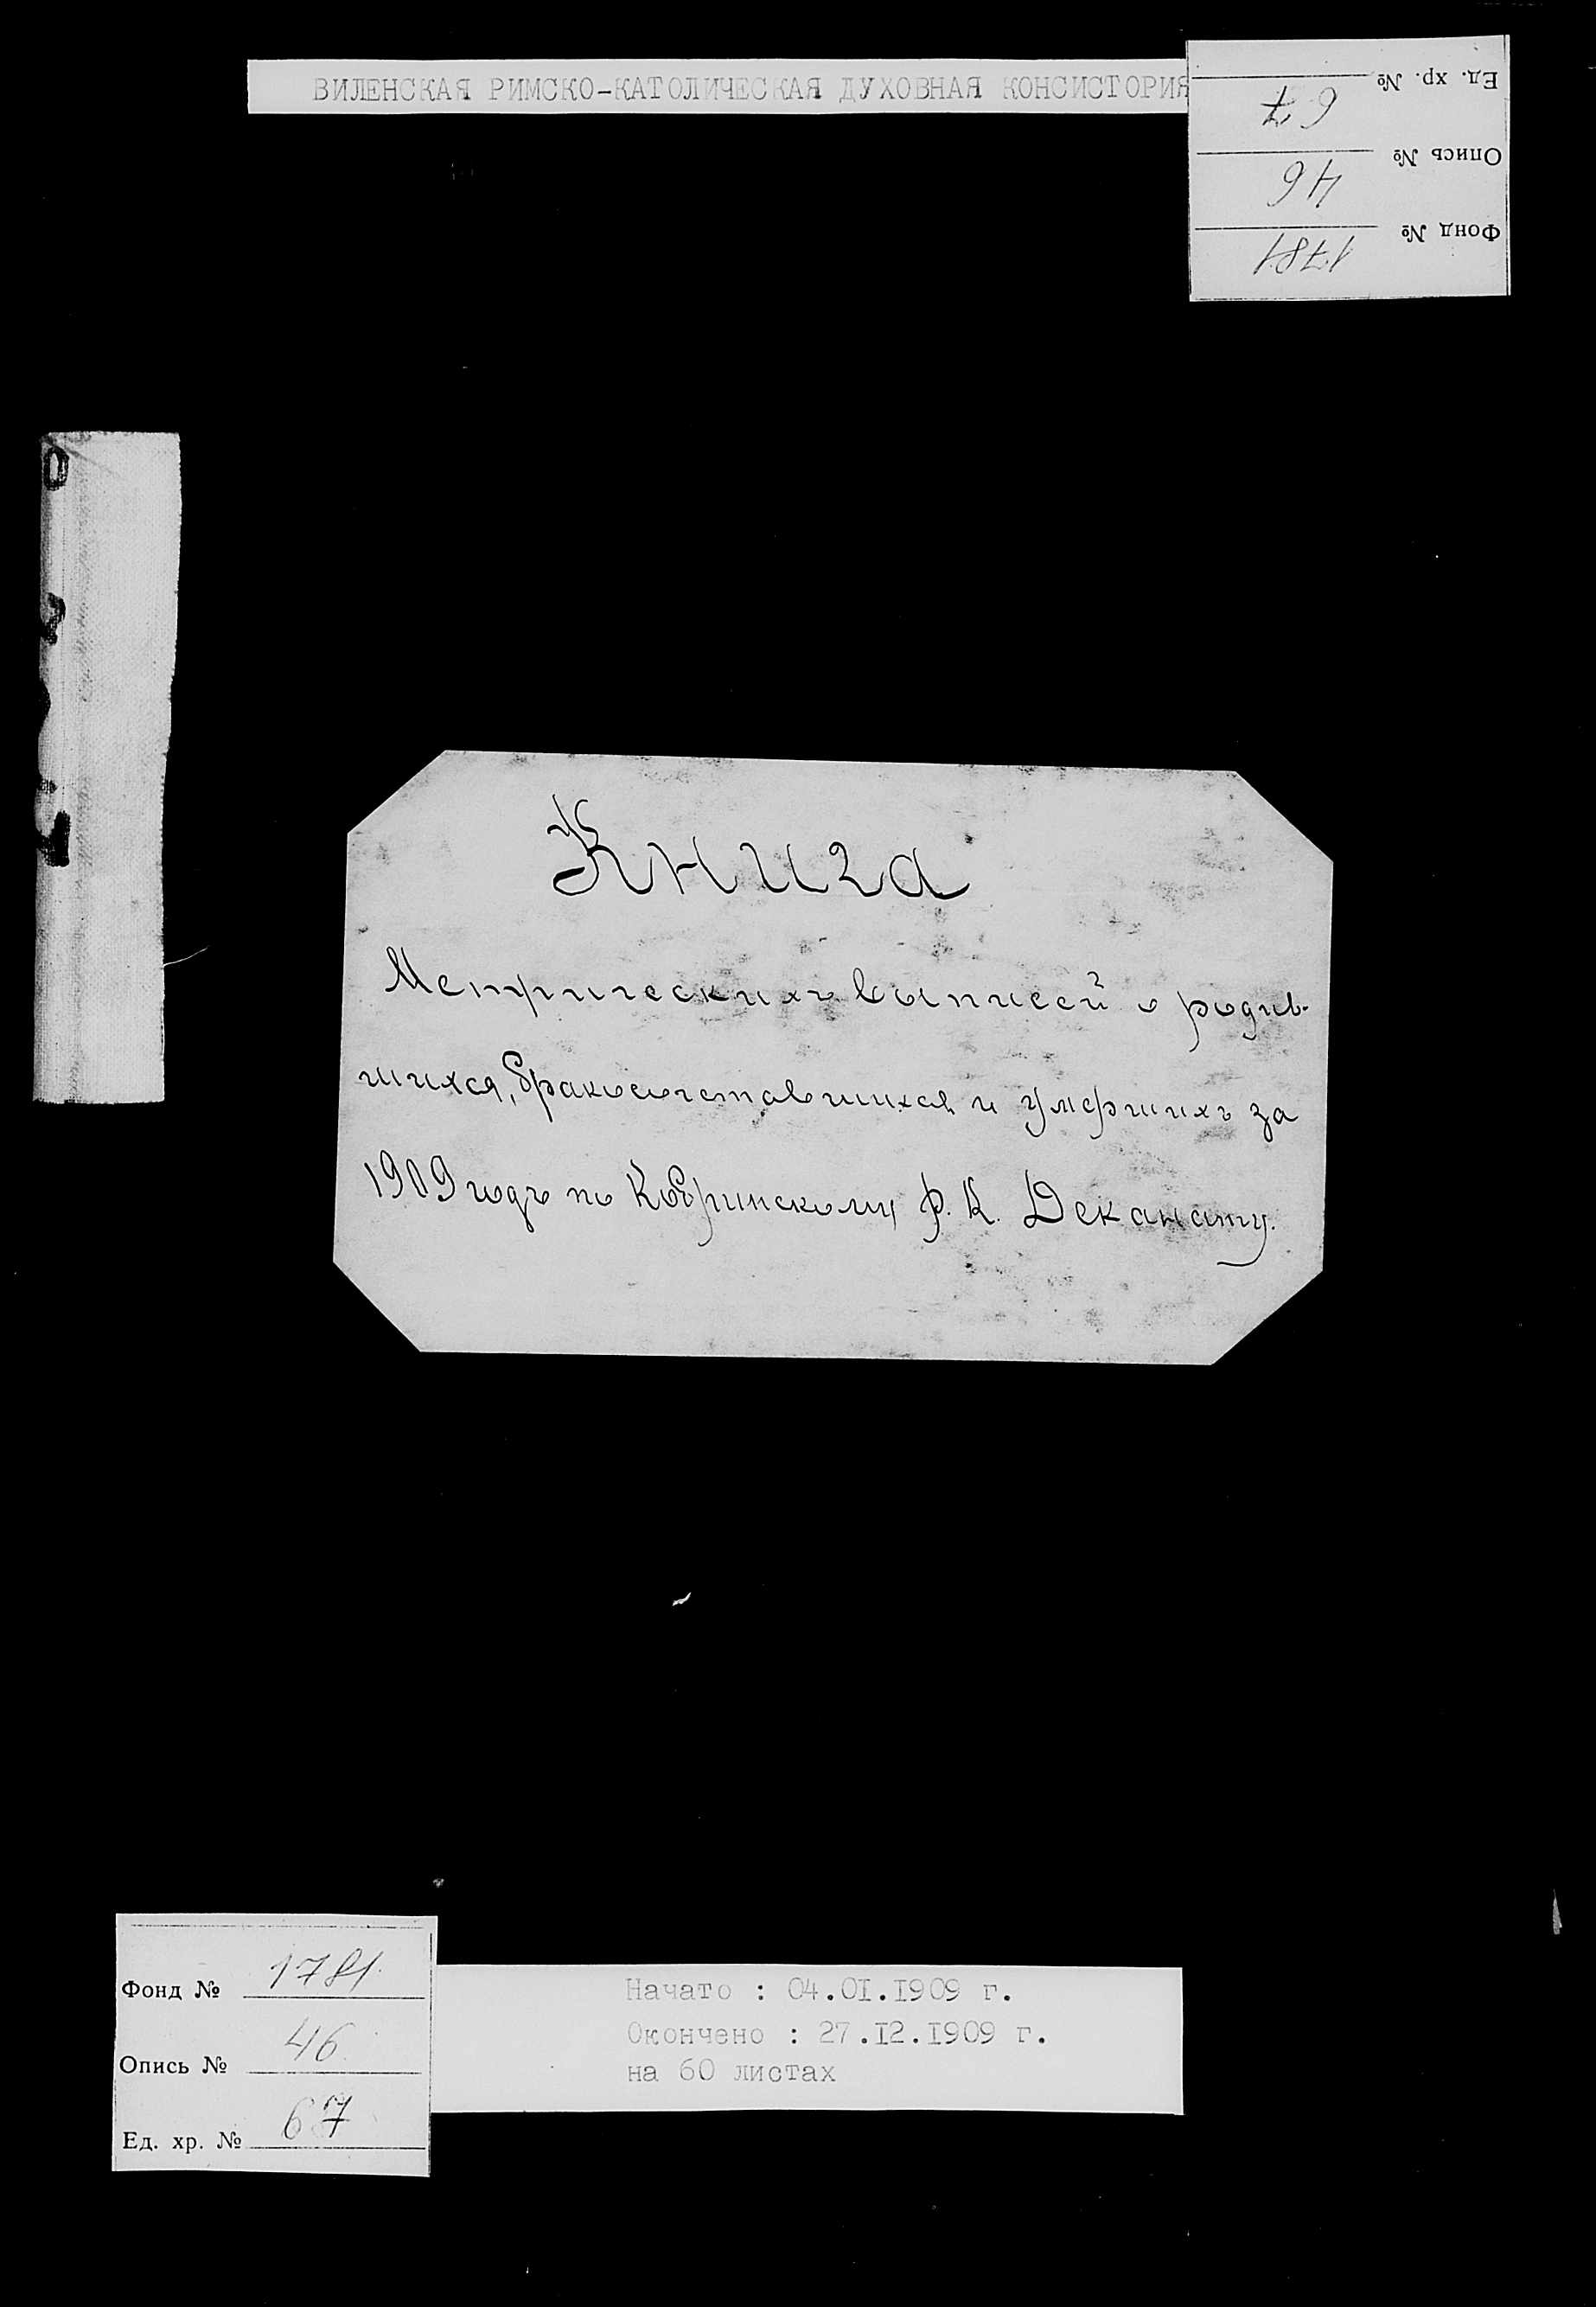 ВИЛЕНСКАЯ РИМСКО-КАТОЛИЧЕСКАЯ ДУХОВНАЯ КОНСИСТОРИЯ
Фонд № 1781
Опись № 46
Ед. хр. № 67
Книга
Метрическихъ выписей о родив-
шихся, бракосочетавшихся и умершихъ за
1909 годъ по Кобринскому Р. К. Деканату.
Фонд № 1781
Опись № 46
Ед. хр. № 67
Начато : 04.01.1909 г.
Окончено : 27.12.1909 г.
на 60 листах